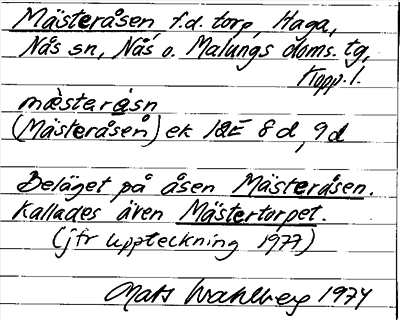 Mästeråsen, f.d. torp, Haga,
Nås sn, Nås o. Malungs doms. tg,
Kopp. l.
mästaråsn
(Mästeråsen) ek 12E 8d, 9d
Beläget på åsen Mästeråsen.
Kallades även Mästertorpet.
(jfr uppteckning 1977)
Mats Wahlberg 1974